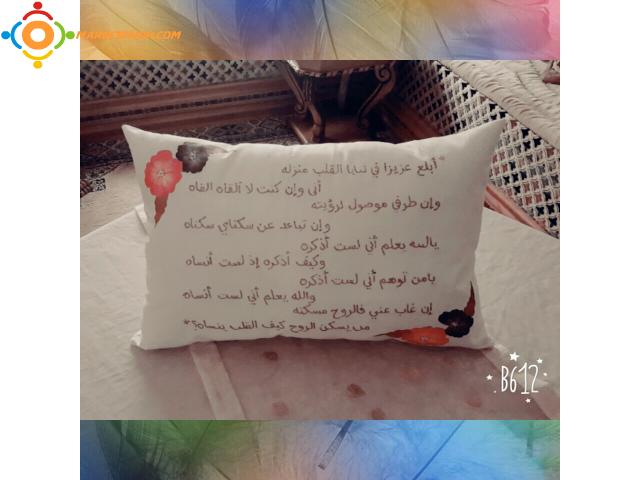 MARKETPISH.COM
"أبلغ عزيزا في ثنايا القلب منزله
أني وإن كنت لا ألقاه القاه
وإن طرفي موصول لرؤيته
وإن تباعد عن سكناي سكناه
ياليته يعلم أني لست أذكره
وكيف أذكره إذ لست أنساه
يامن توهم أني لست أذكره
والله يعلم أني لست أنساه
إن غاب عني فالروح مسكنه
من يسكن الروح كيف القلب ينساه؟"
B612